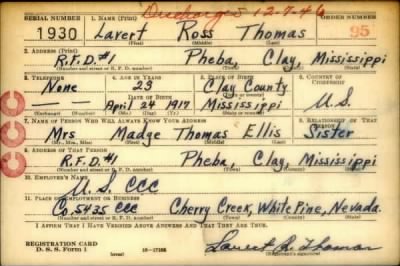 Discharged 12-7-46
SERIAL NUMBER 1. NAME (Print) ORDER NUMBER
1930 Lavert Ross Thomas 95
(First) (Middle) (Last)
2. ADDRESS (Print)
R.F.D.#1 Pheba, Clay, Mississippi
(Number and street or R. F. D. number) (Town) (County) (State)
3. TELEPHONE 4. AGE IN YEARS 5. PLACE OF BIRTH 6. COUNTRY OF CITIZENSHIP
None 23 Clay County
DATE OF BIRTH
April 24 1917 Mississippi U.S.
(Mo.) (Day) (Yr.) (State or country)
7. NAME OF PERSON WHO WILL ALWAYS KNOW YOUR ADDRESS 8. RELATIONSHIP OF THAT PERSON
Mrs Madge Thomas Ellis Sister
(Mr., Mrs., Miss) (First) (Middle) (Last)
9. ADDRESS OF THAT PERSON
R.F.D.#1 Pheba, Clay, Mississippi
(Number and street or R. F. D. number) (Town) (County) (State)
10. EMPLOYER'S NAME
U.S. CCC
11. PLACE OF EMPLOYMENT OR BUSINESS
Co, 5435 CCC Cherry Creek, White Pine, Nevada.
(Number and street or R. F. D. number) (Town) (County) (State)
I AFFIRM THAT I HAVE VERIFIED ABOVE ANSWERS AND THAT THEY ARE TRUE.
REGISTRATION CARD
D. S. S. Form 1 Lavert R. Thomas
(Registrant's signature)
CCC